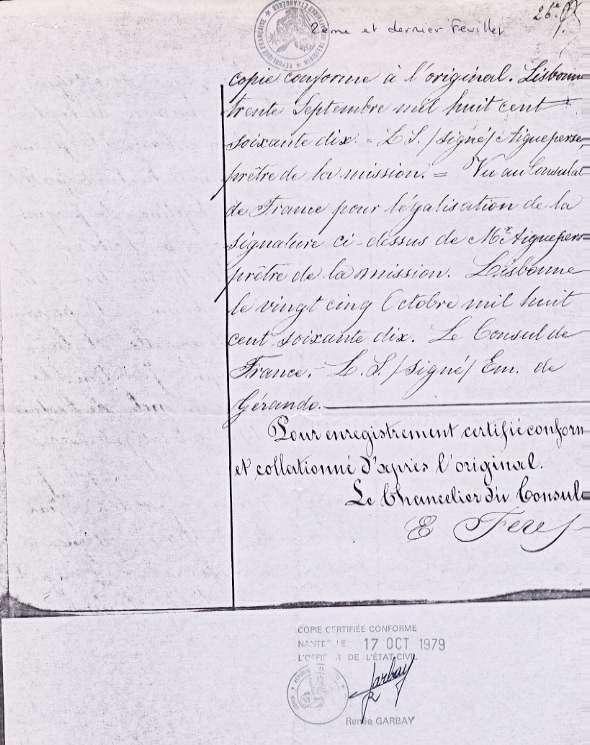 2ème et dernier feuillet
copie conforme à l'original. Lisbonne
trente Septembre mil huit cent
soixante dix. = L. S./signé/Aigueperse,
prêtre de la mission. = Vu au Consulat
de France pour légalisation de la
signature ci-dessus de Mr. Aigueper=
prêtre de la mission. Lisbonne
le vingt cinq Octobre mil huit
cent soixante dix. Le Consul de
France. L. S./signé/ Em. de
Gérando.
Pour enregistrement certifié conform
et collationné d'après l'original.
Le Chancelier du Consul=
COPIE CERTIFIÉE CONFORME
NANTES LE 17 OCT 1979
L'OFFICIER DE L'ÉTAT CIVIL
Garbay
Renée GARBAY